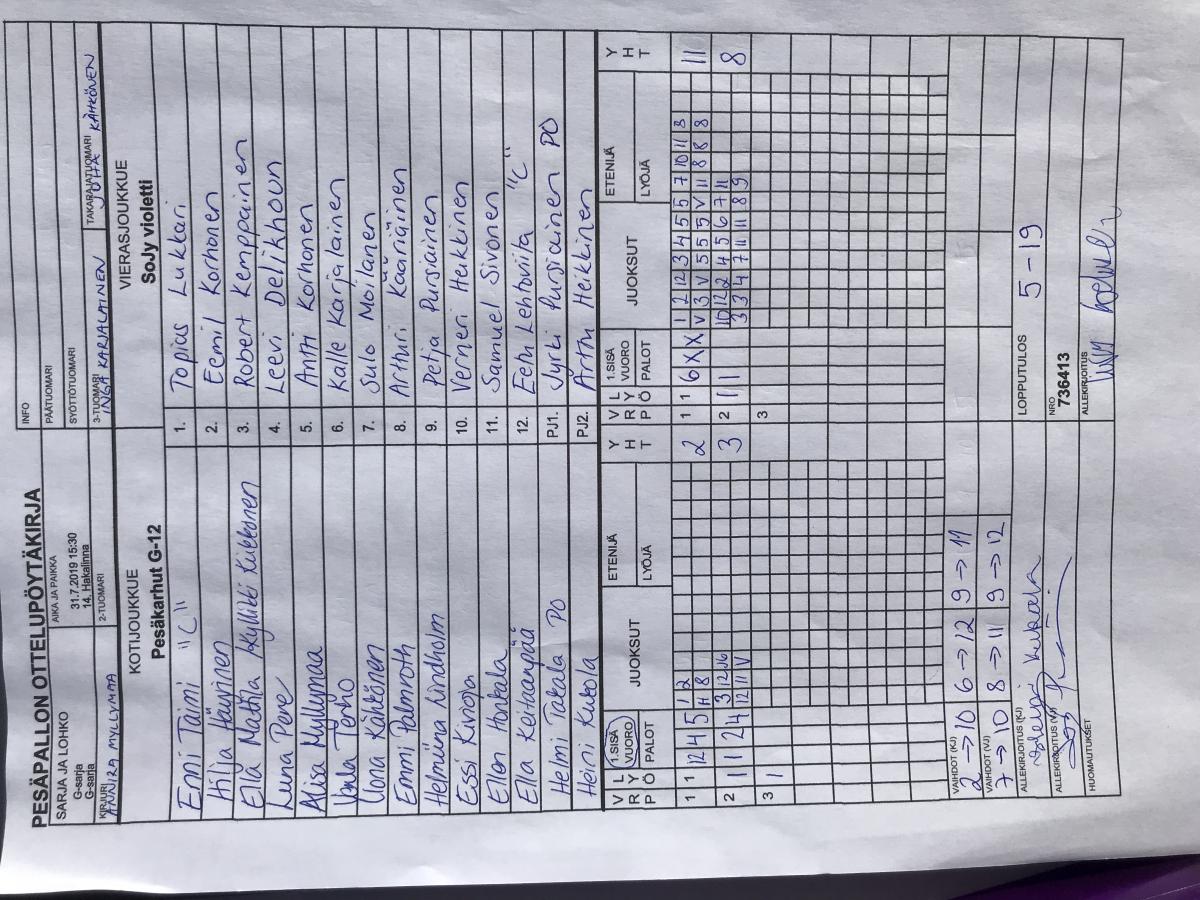 PESÄPALLON OTTELUPÖYTÄKIRJA
INFO
SARJA JA LOHKO
G-sarja
G-sarja
AIKA JA PAIKKA
31.7.2019 15:30
14. Hakalinna
PÄÄTUOMARI
SYÖTTÖTUOMARI
KIRJURI
ANNIRA MYLLYMAA
2-TUOMARI
3-TUOMARI
INGA KARJALAINEN
TAKARAJATUOMARI
JUHA KÄHKÖNEN
KOTIJOUKKUE
Pesäkarhut G-12
VIERASJOUKKUE
SoJy violetti
Enni Taimi "C" 1. Topias Lukkari
Hilja Häyrinen 2. Eemil Korhonen
Ella Matilda Kyllikki Kukkonen 3. Robert Kemppainen
Luna Pere 4. Leevi Delikhoun
Alisa Myllymaa 5. Antti Korhonen
Venla Terho 6. Kalle Karjalainen
Uona Kähkönen 7. Sulo Moilanen
Emmi Palmroth 8. Arttur Kääriäinen
Helmiina Lindholm 9. Petja Pursiainen
Essi Kivioja 10. Verneri Heikkinen
Ellen Honkala 11. Samuel Sivonen
Ella Keitaanpää 12. Eetu Lehtoviita "C"
Helmi Takala PO PJ1. Jyrki Pursiainen PO
Heini Kukola PJ2. Arttu Heikkinen
V R P
L Y Ö
1.SISÄ VUORO
PALOT
JUOKSUT
ETENIJÄ
LYÖJÄ
Y H T
V R P
L Y Ö
1.SISÄ VUORO
PALOT
JUOKSUT
ETENIJÄ
LYÖJÄ
Y H T
1 1 12 4 5 1 2 2
11 8
2 1 1 2 4 3 12 10 3
12 11 V
3 1
1 1 6 X X 1 2 12 3 4 5 5 7 10 11 3 11
V 3 V 5 5 5 V 11 8 8 8
2 1 1 10 12 2 4 5 6 7 11 8
3 3 4 7 11 11 8 9
3
VAIHDOT (KJ)
2 → 10 6 → 12 9 → 11
VAIHDOT (VJ)
7 → 10 8 → 11 9 → 12
LOPPUTULOS 5 - 19
ALLEKIRJOITUS (KJ)
NRO
736413
ALLEKIRJOITUS (VJ)
ALLEKIRJOITUS
HUOMAUTUKSET